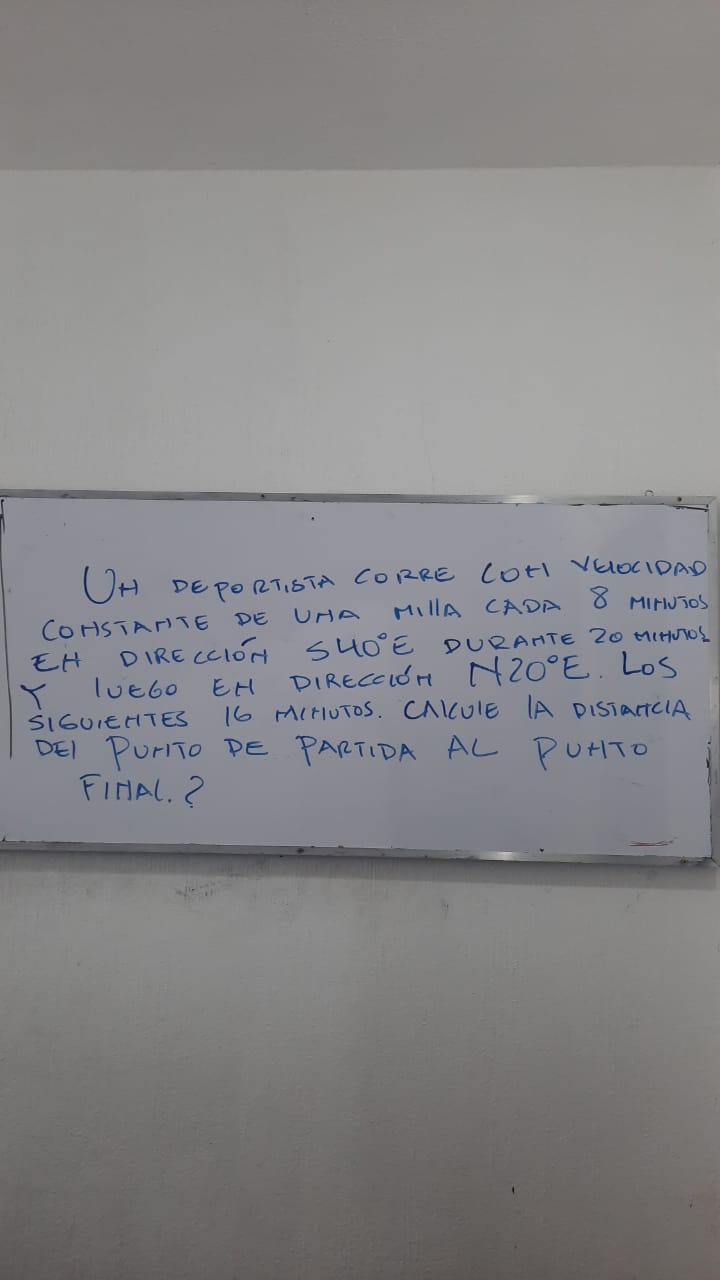 UN DEPORTISTA CORRE CON VELOCIDAD
CONSTANTE DE UNA MILLA CADA 8 MINUTOS
EN DIRECCIÓN S40°E DURANTE 20 MINUTOS
Y LUEGO EN DIRECCIÓN N20°E. LOS
SIGUIENTES 16 MINUTOS. CALCULE LA DISTANCIA
DEL PUNTO DE PARTIDA AL PUNTO
FINAL.?